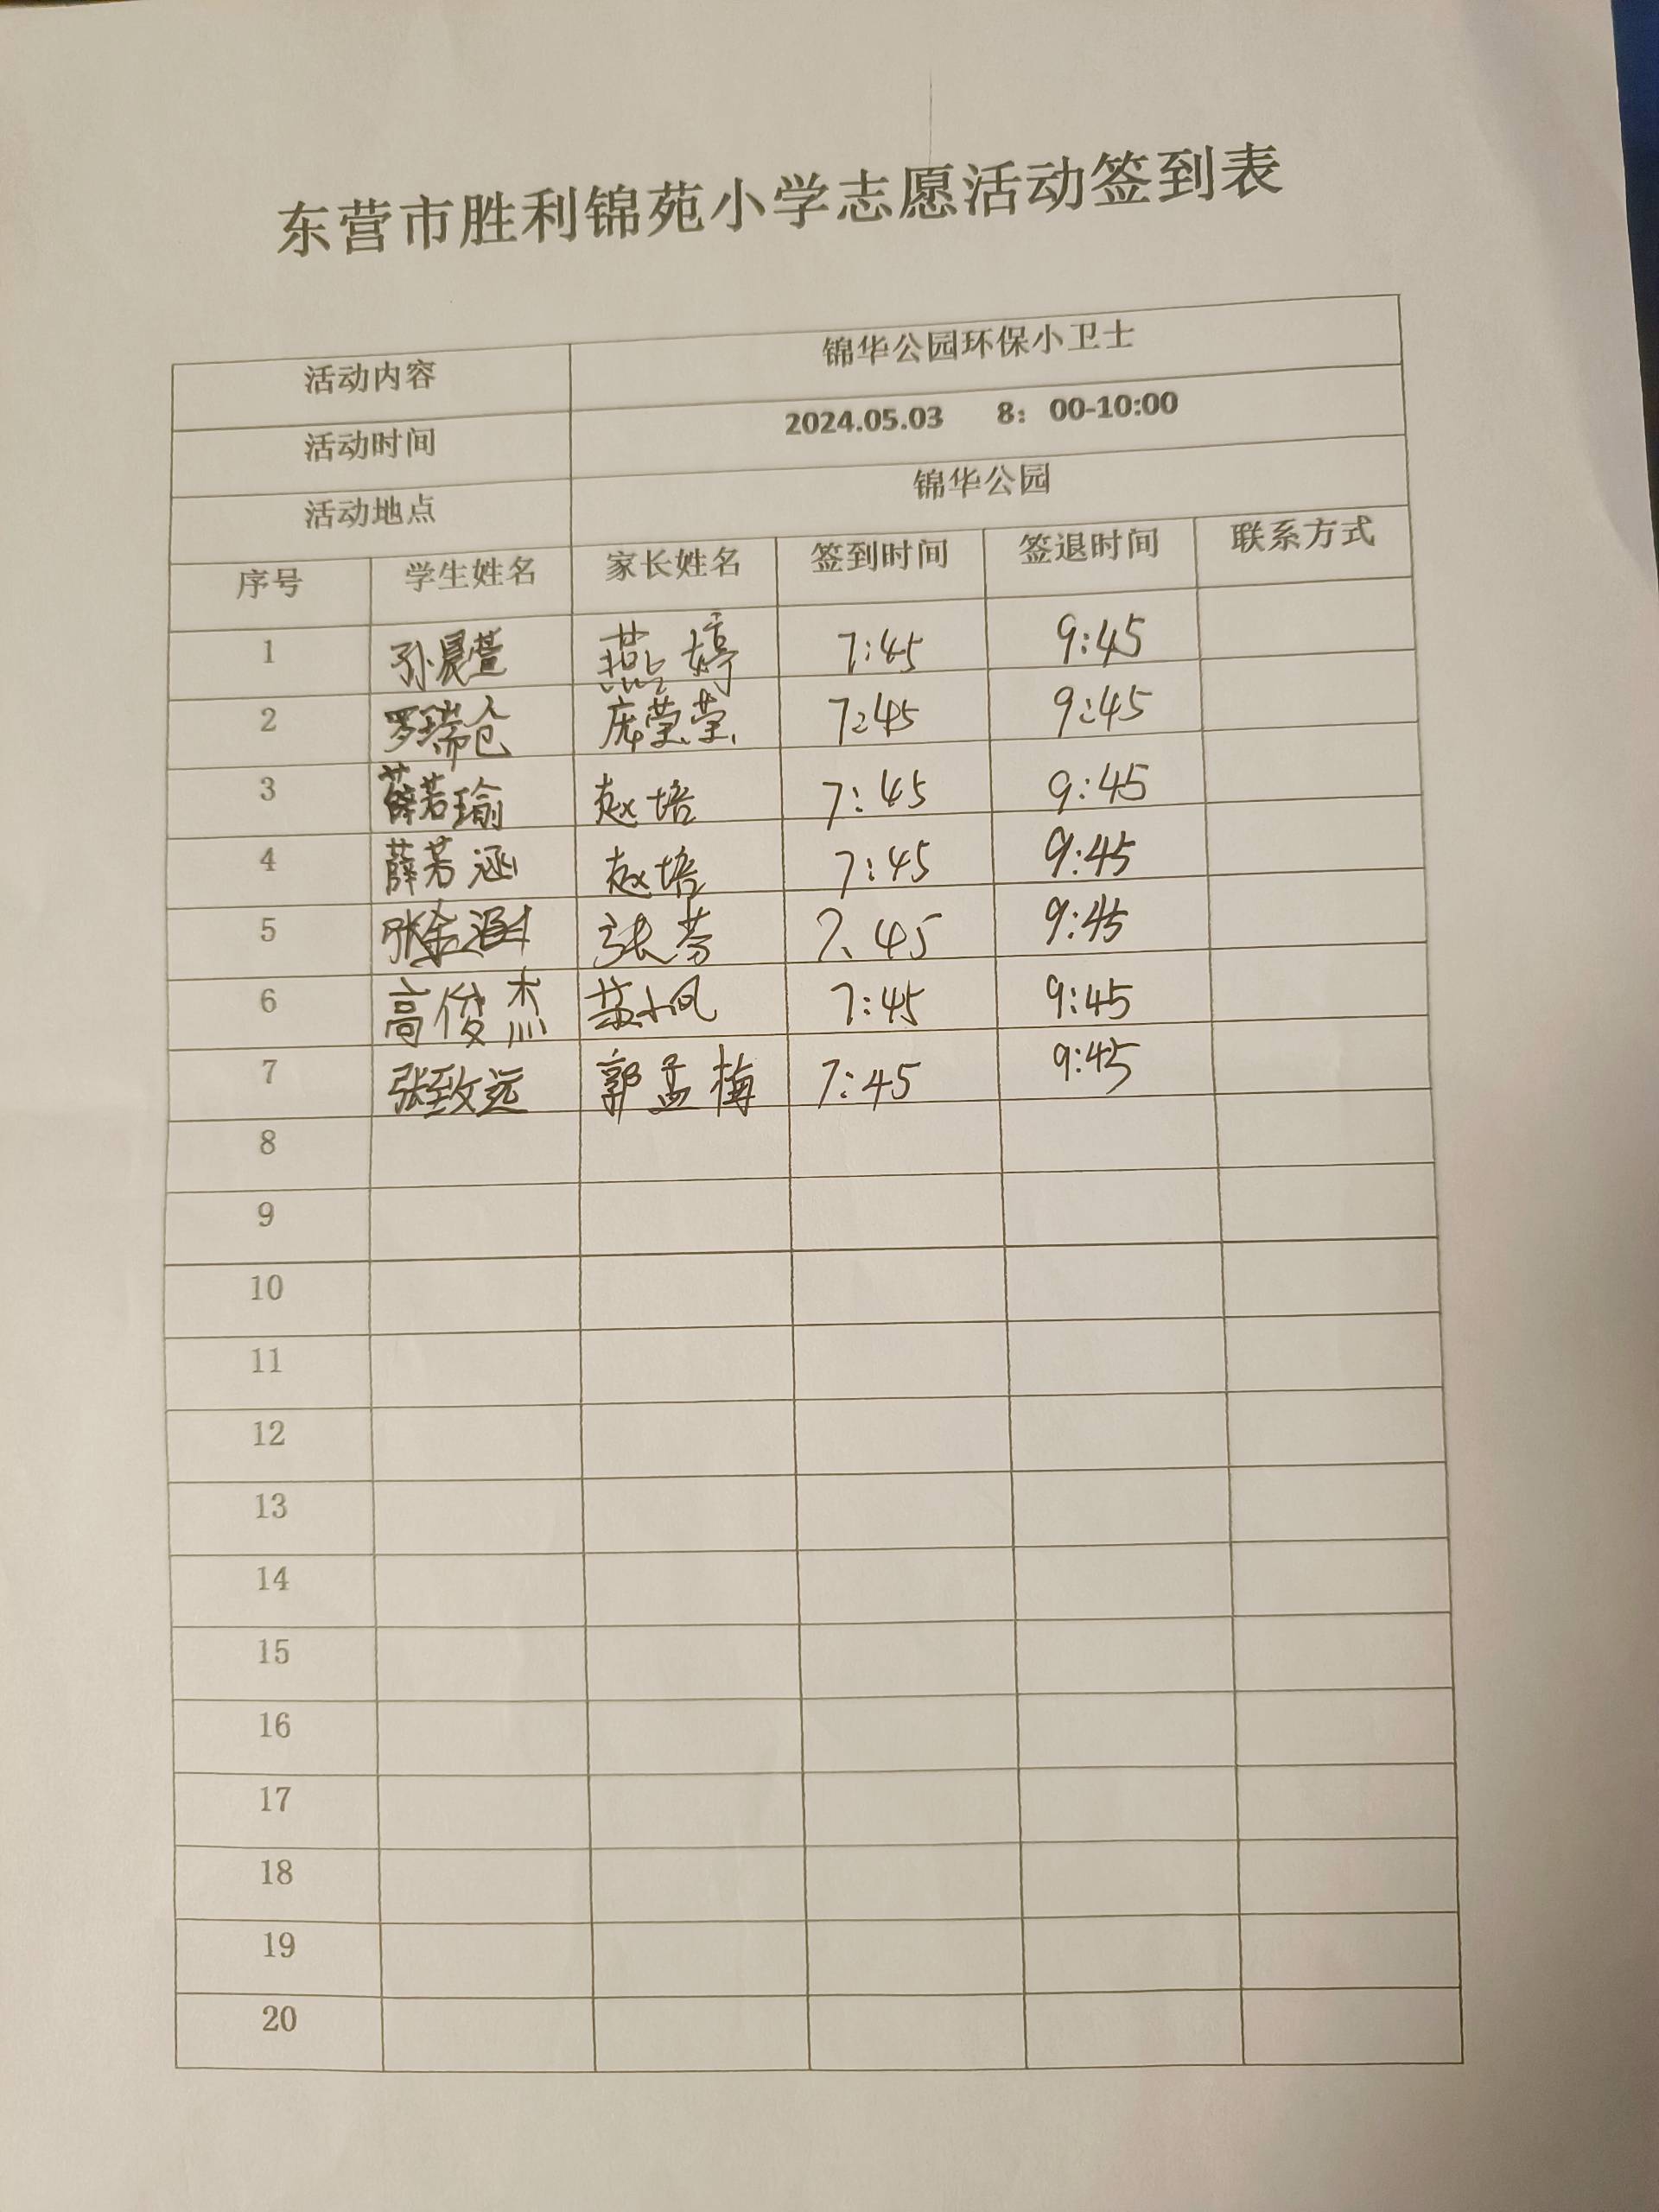 东营市胜利锦苑小学志愿活动签到表
活动内容 锦华公园环保小卫士
活动时间 2024.05.03 8：00-10:00
活动地点 锦华公园
序号 学生姓名 家长姓名 签到时间 签退时间 联系方式
1 孙晨萱 燕婷 7:45 9:45
2 罗瑞仓 庞莹莹 7:45 9:45
3 薛若瑜 赵培 7:45 9:45
4 薛若涵 赵培 7:45 9:45
5 张金 张芬 7:45 9:45
6 高俊杰 小凤 7:45 9:45
7 张致远 郭孟梅 7:45 9:45
8
9
10
11
12
13
14
15
16
17
18
19
20